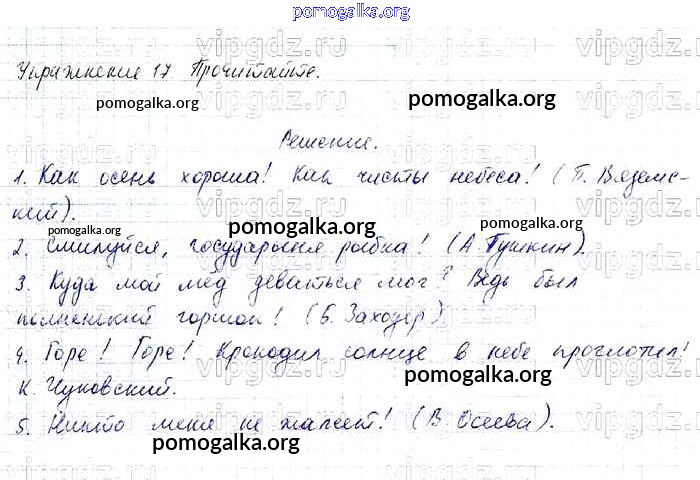 pomogalka.org
vipgdz.ru vipgdz.ru vipgdz.ru
Упражнение 17 Прочитайте.
pomogalka.org pomogalka.org
Решение.
1. Как осень хороша! Как чисты небеса! (П. Вяземс-
кий).
pomogalka.org pomogalka.org pomogalka.org
2. Смилуйся, государыня рыбка! (А. Пушкин).
3. Куда мой мёд деваться мог? Ведь был
полненький горшок! (Б. Заходер)
pomogalka.org pomogalka.org
4. Горе! Горе! Крокодил солнце в небе проглотил!
К. Чуковский.
pomogalka.org
5. Никто меня не жалеет! (В. Осеева).
pomogalka.org pomogalka.org